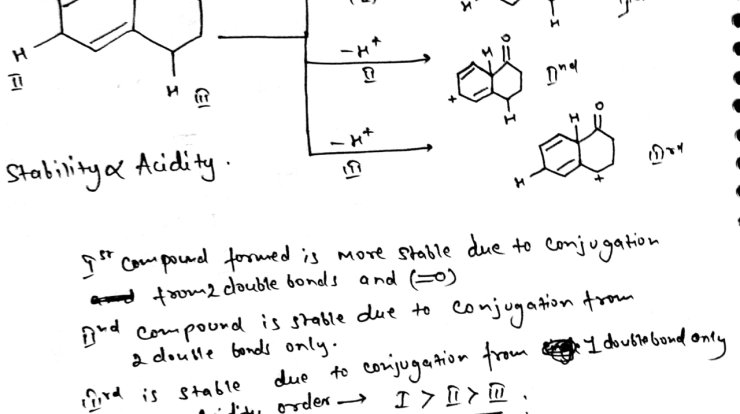 H
II
H
III
-H⁺
II
H
O
+
H
IInd
-H⁺
III
H
O
H
+
IIIrd
Stability α Acidity.
Ist compound formed is more stable due to conjugation
from 2 double bonds and (=O)
IInd compound is stable due to conjugation from
2 double bonds only.
IIIrd is stable due to conjugation from 1 double bond only
order → I > II > III.